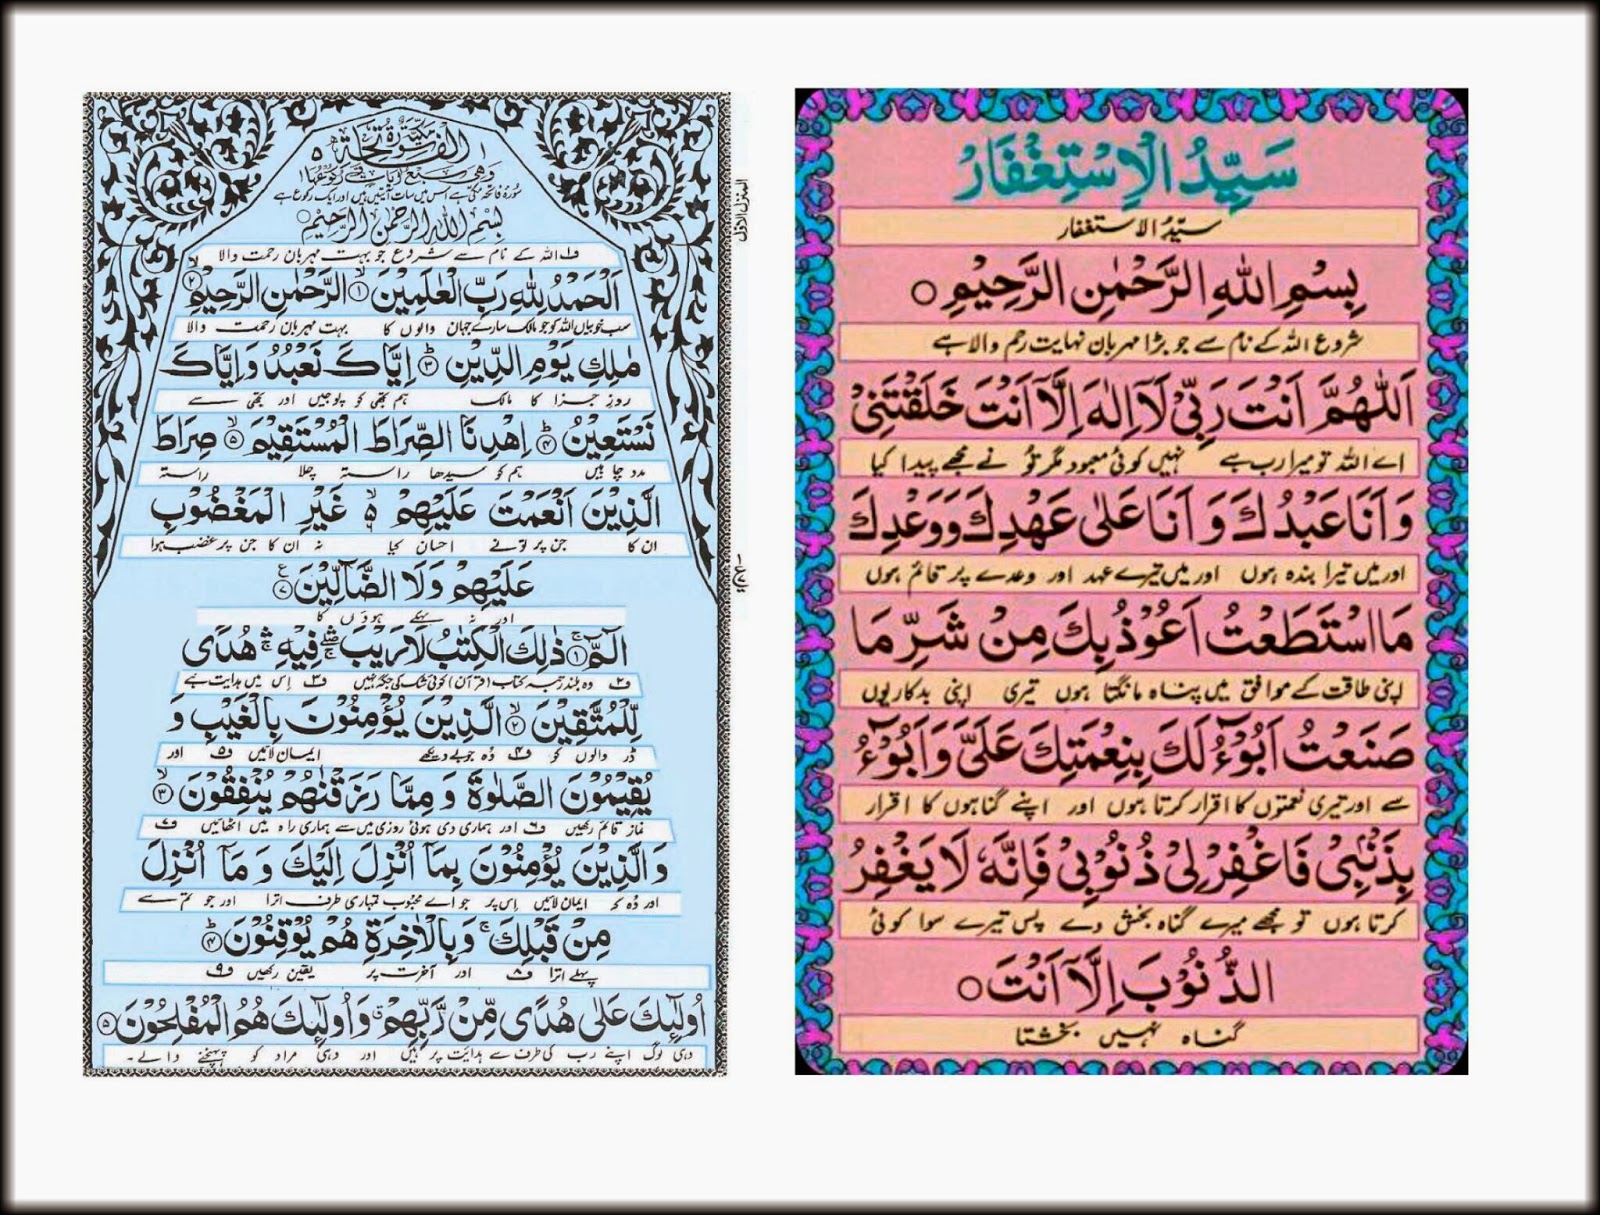 سُوْرَةُ الْفَاتِحَةِ مَكِّيَّةٌ
وَهِيَ سَبْعُ اٰيَاتٍ
سورۃ فاتحہ مکی ہے اس میں سات آیتیں ہیں اور ایک رکوع ہے
بِسْمِ اللّٰهِ الرَّحْمٰنِ الرَّحِيْمِ
ف۱ اللہ کے نام سے شروع جو بہت مہربان رحمت والا
اَلْحَمْدُ لِلّٰهِ رَبِّ الْعٰلَمِيْنَ ۙ﴿۱﴾ الرَّحْمٰنِ الرَّحِيْمِ ۙ﴿۲﴾
سب خوبیاں اللہ کو جو مالک سارے جہان والوں کا بہت مہربان رحمت والا
مٰلِكِ يَوْمِ الدِّيْنِ ؕ﴿۳﴾ اِيَّاكَ نَعْبُدُ وَاِيَّاكَ
روزِ جزا کا مالک ہم تجھی کو پوجیں اور تجھی سے
نَسْتَعِيْنُ ؕ﴿۴﴾ اِهْدِنَا الصِّرَاطَ الْمُسْتَقِيْمَ ۙ﴿۵﴾ صِرَاطَ
مدد چاہیں ہم کو سیدھا راستہ چلا راستہ
الَّذِيْنَ اَنْعَمْتَ عَلَيْهِمْ ۙ۬ غَيْرِ الْمَغْضُوْبِ
ان کا جن پر تو نے احسان کیا نہ ان کا جن پر غضب ہوا
عَلَيْهِمْ وَلَا الضَّآلِّيْنَ ﴿۷﴾
اور نہ بہکے ہوؤں کا
الٓمّٓ ۚ﴿۱﴾ ذٰلِكَ الْكِتٰبُ لَا رَيْبَ ۖۛ فِيْهِ ۚۛ هُدًى
ف۲ وہ بلند رتبہ کتاب (قرآن) کوئی شک کی جگہ نہیں ف۳ اس میں ہدایت ہے
لِّلْمُتَّقِيْنَ ۙ﴿۲﴾ الَّذِيْنَ يُؤْمِنُوْنَ بِالْغَيْبِ وَ
ڈر والوں کو ف۴ وہ جو بے دیکھے ایمان لائیں ف۵ اور
يُقِيْمُوْنَ الصَّلٰوةَ وَ مِمَّا رَزَقْنٰهُمْ يُنْفِقُوْنَ ۙ﴿۳﴾
نماز قائم رکھیں ف۶ اور ہماری دی ہوئی روزی میں سے ہماری راہ میں اٹھائیں ف۷
وَالَّذِيْنَ يُؤْمِنُوْنَ بِمَآ اُنْزِلَ اِلَيْكَ وَ مَآ اُنْزِلَ
اور وہ کہ ایمان لائیں اس پر جو اے محبوب تمہاری طرف اترا اور جو تم سے
مِنْ قَبْلِكَ ۚ وَبِالْاٰخِرَةِ هُمْ يُوْقِنُوْنَ ؕ﴿۴﴾
پہلے اترا ف۸ اور آخرت پر یقین رکھیں ف۹
اُولٰٓئِكَ عَلٰى هُدًى مِّنْ رَّبِّهِمْ ۗ وَاُولٰٓئِكَ هُمُ الْمُفْلِحُوْنَ ﴿۵﴾
وہی لوگ اپنے رب کی طرف سے ہدایت پر ہیں اور وہی مراد کو پہنچنے والے۔
المنزل الاوّل
سَيِّدُ الْاِسْتِغْفَارْ
سیّدُ الاستغفار
بِسْمِ اللّٰهِ الرَّحْمٰنِ الرَّحِيْمِ ○
شروع اللہ کے نام سے جو بڑا مہربان نہایت رحم والا ہے
اَللّٰهُمَّ اَنْتَ رَبِّىْ لَآ اِلٰهَ اِلَّآ اَنْتَ خَلَقْتَنِىْ
اے اللہ تو میرا رب ہے نہیں کوئی معبود مگر تُو نے مجھے پیدا کیا
وَ اَنَا عَبْدُكَ وَ اَنَا عَلٰى عَهْدِكَ وَوَعْدِكَ
اور میں تیرا بندہ ہوں اور میں تیرے عہد اور وعدے پر قائم ہوں
مَا اسْتَطَعْتُ اَعُوْذُ بِكَ مِنْ شَرِّ مَا
اپنی طاقت کے موافق میں پناہ مانگتا ہوں تیری اپنی بدکاریوں
صَنَعْتُ اَبُوْٓءُ لَكَ بِنِعْمَتِكَ عَلَىَّ وَ اَبُوْٓءُ
سے اور تیری نعمتوں کا اقرار کرتا ہوں اور اپنے گناہوں کا اقرار
بِذَنْۢبِىْ فَاغْفِرْ لِىْ ذُنُوْبِىْ فَاِنَّهٗ لَا يَغْفِرُ
کرتا ہوں تو مجھے میرے گناہ بخش دے پس تیرے سوا کوئی
الذُّنُوْبَ اِلَّآ اَنْتَ ○
گناہ نہیں بخشتا